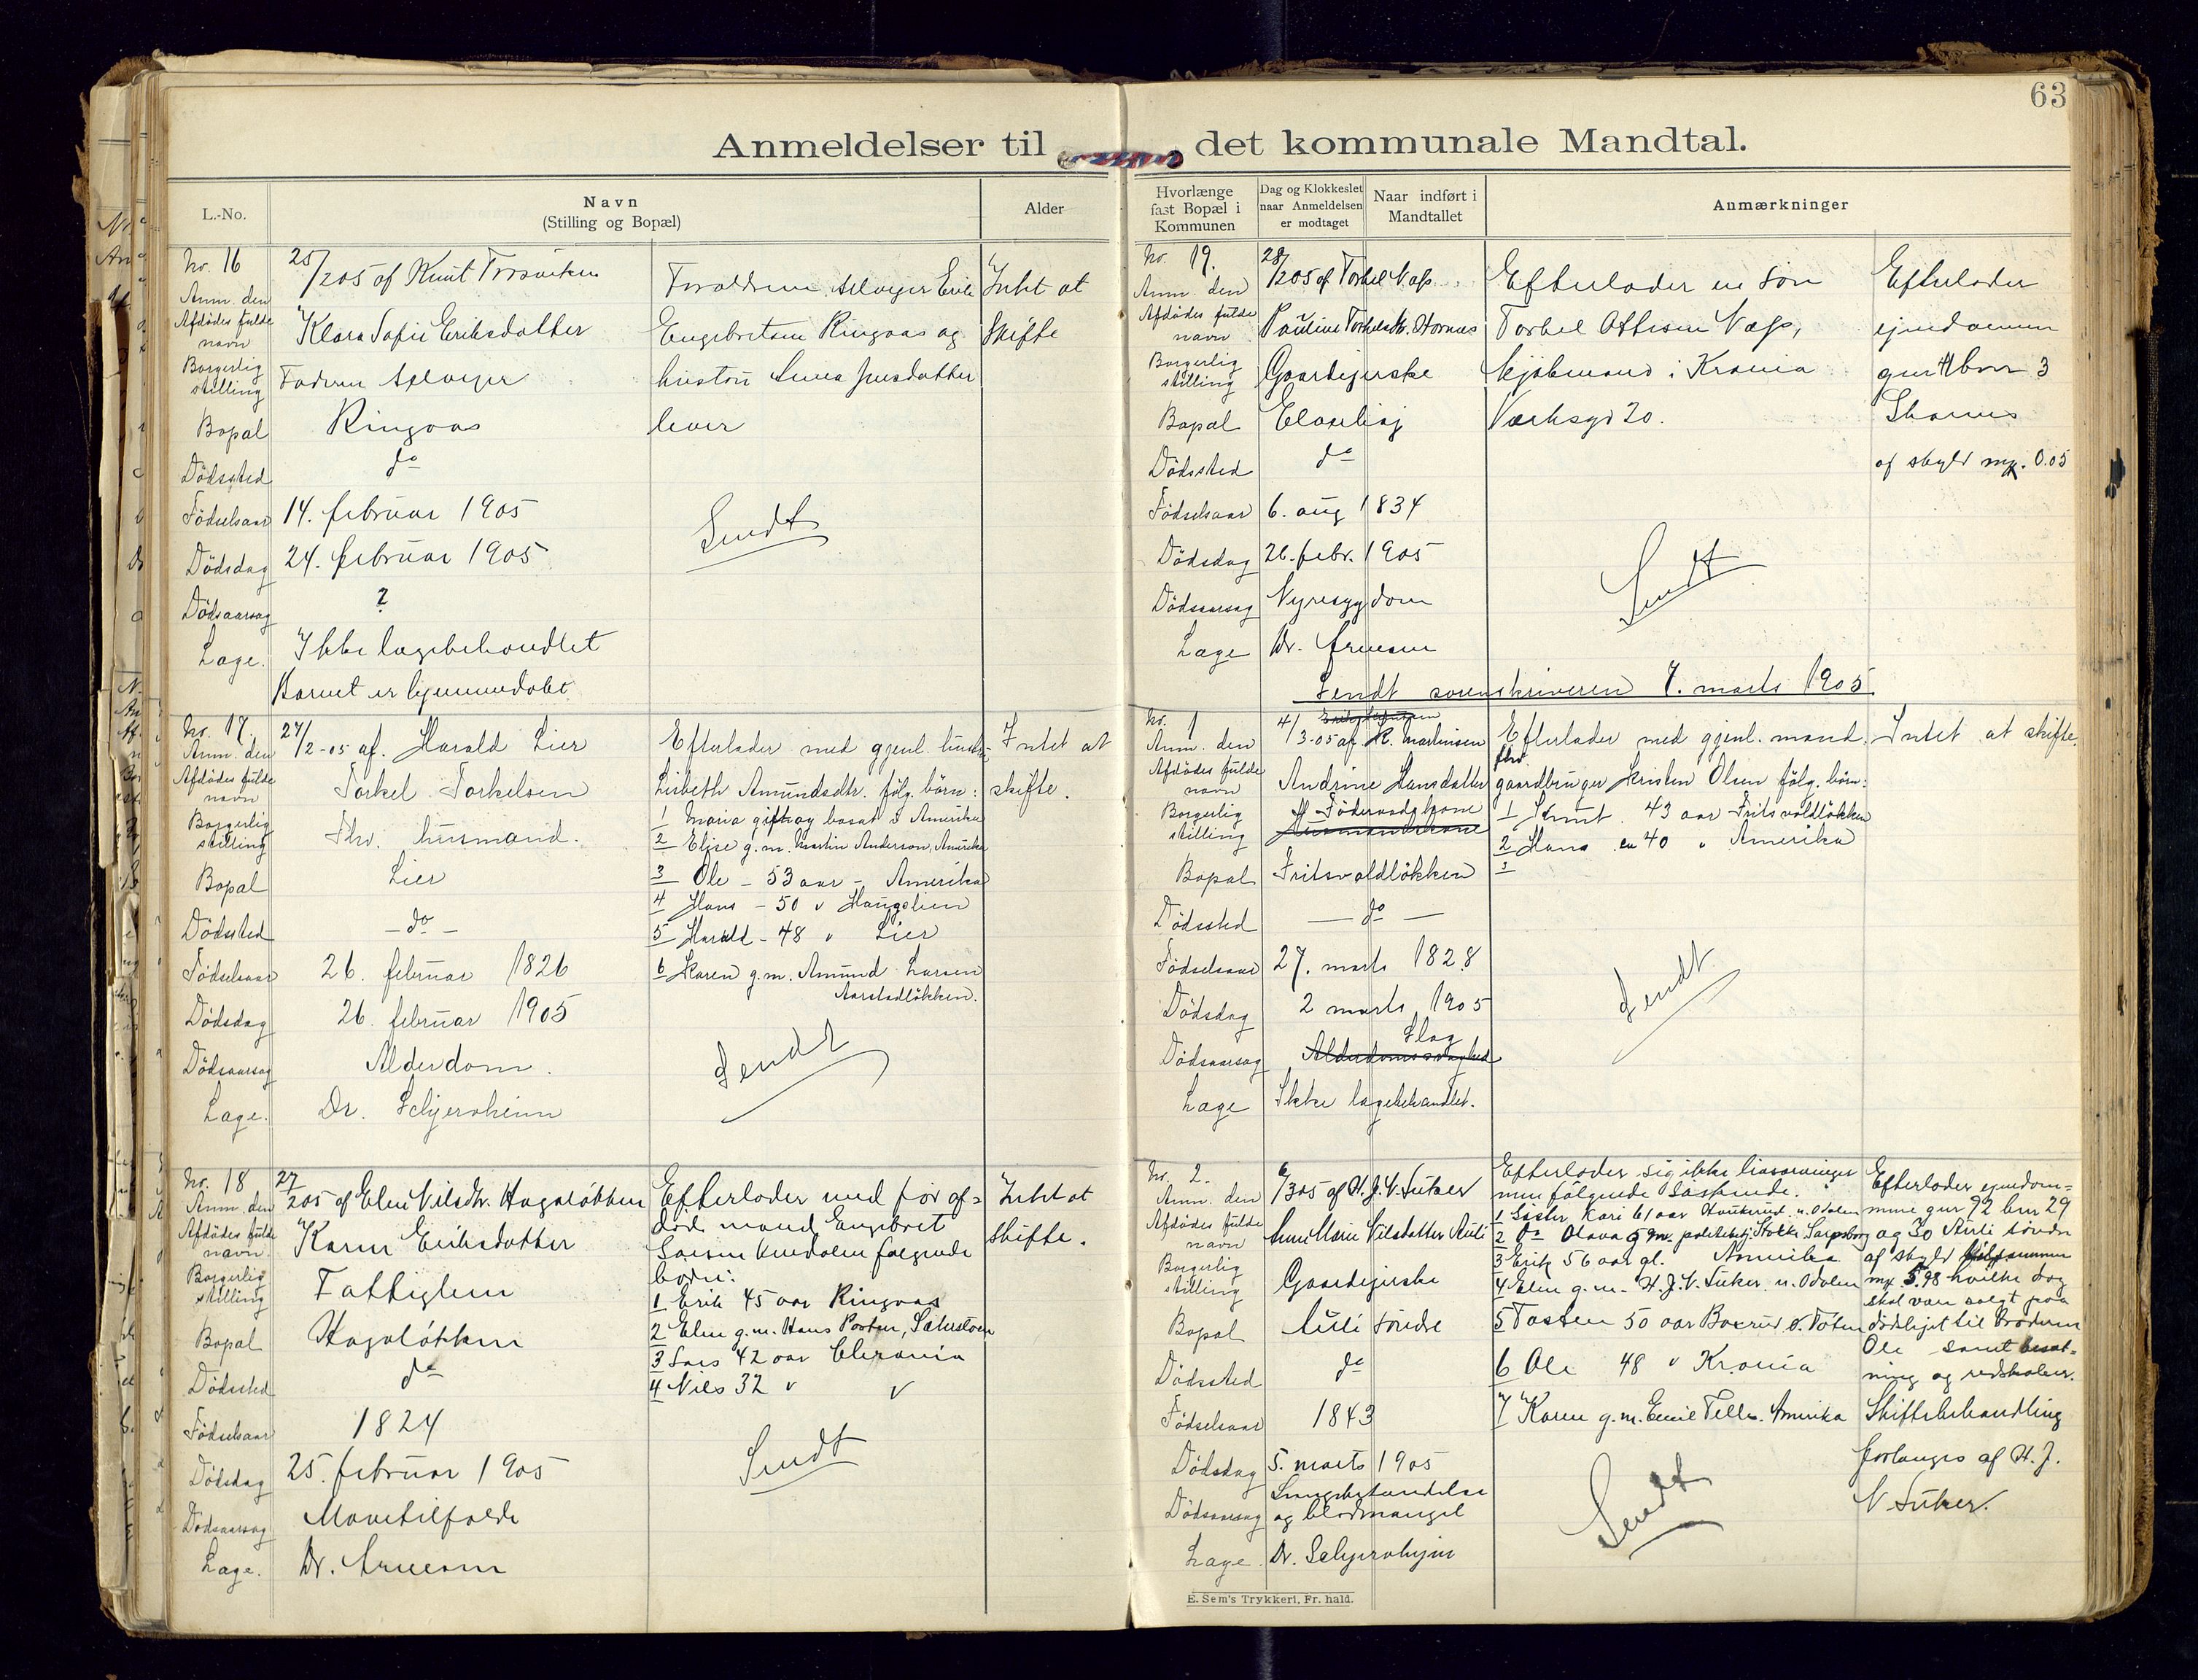 63
Anmeldelser til det kommunale Mandtal.
L.-No.
Navn
(Stilling og Bopæl)
Alder
Hvorlænge
fast Bopæl i
Kommunen
Dag og Klokkeslet
naar Anmeldelsen
er modtaget
Naar indført i
Mandtallet
Anmærkninger
No. 16
Anm. den 25/205 af Knut
Afdödes fulde navn Klara Sofie Eriksdatter
Borgerlig stilling Faderen
Bopæl Ringaas
Dödssted do
Födselsaar 14. februar 1905
Dödsdag 24. februar 1905
Dödsaarsag ?
Læge. Ikke lægebehandlet
Barnet er hjemmedøbt
Forældrene Erik
Engebretsen Ringaas og
hustru
lever
Sendt
Intet at
skifte
No. 17.
Anm. den 27/2-05 af. Harald Lier
Afdödes fulde navn Torkel Torkelsen
Borgerlig stilling Fhv. husmand.
Bopæl Lier
Dödssted - do -
Födselsaar 26. februar 1826
Dödsdag 26. februar 1905
Dödsaarsag Alderdom.
Læge. Dr.
Efterlader med gjenl. hustr.
Lisbeth Amundsdtr. fölg. börn:
1 Maria gift og bosat i Amerika
2 Elise g.m. Martin Anderson, Amerika
3 Ole - 53 aar - Amerika
4 Hans - 50 " Haugelien
5 Harald - 48 " Lier
6 Karen g.m. Amund Larsen
Aarstadlökken.
Sendt
Intet at
skifte.
No. 18
Anm. den 27/205 af Elen Nilsdtr. Hagaløkken
Afdödes fulde navn. Karen Eriksdatter
Borgerlig stilling Fattiglem
Bopæl Hagaløkken
Dödssted do
Födselsaar 1824
Dödsdag 25. februar 1905
Dödsaarsag Mavetilfælde
Læge. Dr. Arnesen
Efterlader med før af=
død mand Engebret
Larsen følgende
børn:
1 Erik 45 aar Ringaas
2 Elen g.m. Hans
3 Lars 42 aar
4 Nils 32 " "
Sendt
Intet at
skifte.
No. 19.
Anm. den 28/205 af Torkel Næss
Afdödes fulde navn Pauline Torkelsdtr.
Borgerlig stilling Gaardejerske
Bopæl
Dödssted do
Födselsaar 6. aug 1834
Dödsdag 26. febr. 1905
Dödsaarsag Nyresygdom
Læge Dr. Arnesen
Efterlader en søn
Torkel Ottesen Næss,
kjøbmand i Krania
Værksgd 20.
Sendt
Efterlader
ejendommen
gnr 41 bnr 3
af skyld mk. 0.05
Sendt sorenskriveren 7. marts 1905
No. 1
Anm. den 4/3-05 af K. Martinsen
Afdödes fulde navn Andrine Hansdatter
Borgerlig stilling Föderaadskone
Bopæl Fritsvoldlökken
Dödssted - do -
Födselsaar 27. marts 1828
Dödsdag 2 marts 1905
Slag
Dödsaarsag Alderdomssvaghed
Læge Ikke lægebehandlet.
Efterlader med gjenl. mand
fhv. gaardbruger Kristen Olsen fölg. börn:
1 Knut 43 aar Fritsvoldlökken
2 Hans ca 40 " Amerika
3
Sendt
Intet at skifte.
No. 2.
Anm. den 6/305 af H. J. N. Suker
Afdödes fulde navn Anne Marie Nilsdatter Auli
Borgerlig stilling Gaardejerske
Bopæl Auli søndre
Dödssted do
Födselsaar 1843
Dödsdag 5. marts 1905
Dödsaarsag Lungebetændelse
og blodmangel
Læge. Dr.
Efterlader sig ikke livsarvinger
men følgende søskende.
1 Søster Kari 61 aar n. Odalen
2 do Olava g.m. politibetj. Stokke Sarpsborg
3 Erik 56 aar gl. Amerika
4 Elen g.m. H. J. N. Suker n. Odalen
5 Torsten 50 aar ø. Toten
6 Ole 48 " Krania
7 Karen g.m. Emil Amerika
Sendt
Efterlader ejendom=
mene gnr 92 bnr 29
og 30 Auli søndre
af skyld
mk 5.98 hvilke dog
skal være solgt paa
dødslejet til broderen
Ole samt besæt=
ning og redskaber.
Skiftebehandling
forlanges af H. J.
N Suker.
E. Sem's Trykkeri, Fr. hald.